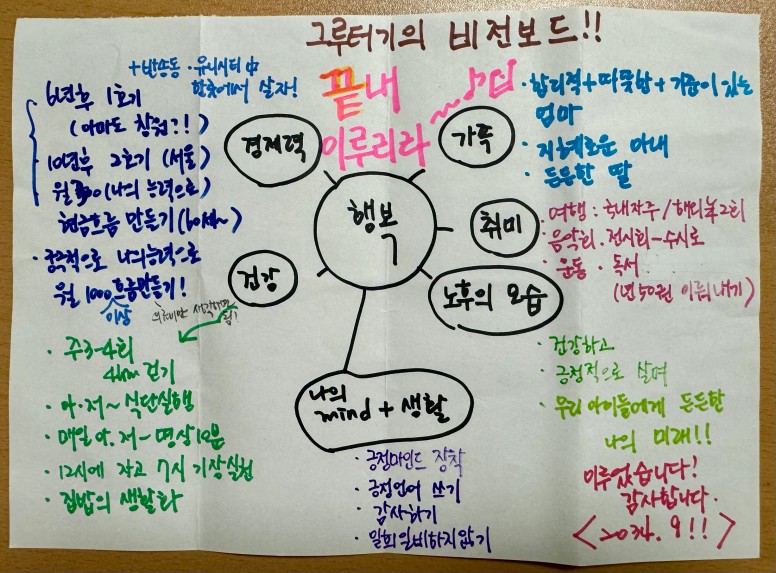 그루터기의 비전보드!!
끝내
이루리라
행복
경제력
+반송동·유니시티中
한곳에서 살자!
6년후 1호기
(아마도 창원?!)
10년후 2호기 (서울)
월 (나의 능력으로)
현금흐름 만들기 (60세~)
· 궁극적으로 나의능력으로
월 1000 흐름만들기!
이상
가족
· 합리적+따뜻함+기준이 있는
엄마
· 지혜로운 아내
· 든든한 딸
취미
· 여행 : 국내자주/해외年2회
· 음악회·전시회-수시로
· 운동·독서
(년50권 이뤄내기)
노후의 모습
· 건강하고
· 긍정적으로 살며
· 우리아이들에게 든든한
나의 미래!!
이루었습니다!
감사합니다.
<2034. 9!!>
건강
· 주3-4회
4km 걷기
· 아·저~ 식단실행
· 매일 아, 저~명상10분
· 12시에 자고 7시 기상실천
· 집밥의 생활화
나의
mind + 생활
· 긍정마인드 장착
· 긍정언어 쓰기
· 감사하기
· 일희일비하지않기